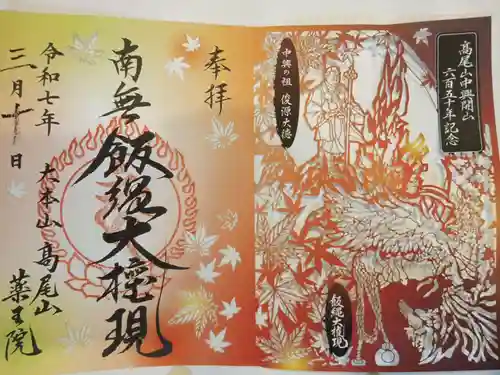 高尾山中興開山
六百五十年記念
中興の祖 俊源大徳
飯縄大権現
奉拝
南無飯縄大権現
令和七年
三月十日
大本山 高尾山
薬王院